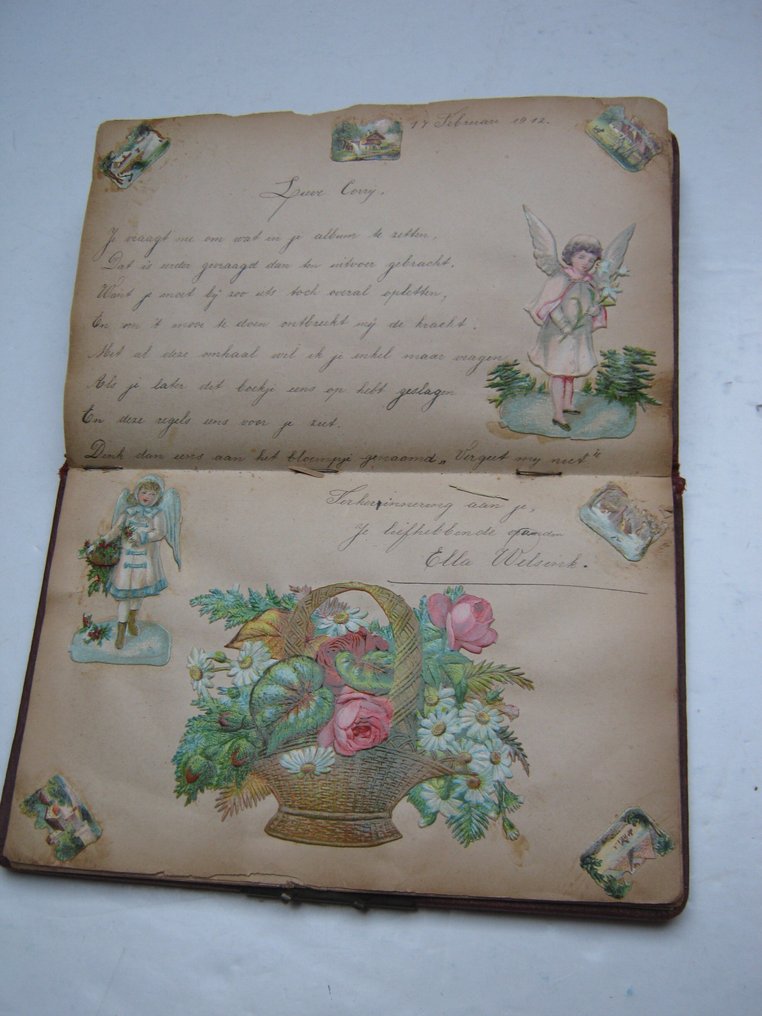 17 Februari 1912.
Lieve Corry.
Je vraagt me om wat in je album te zetten,
Dat is eerder gevraagd dan ten uitvoer gebracht.
Want je moet bij zoo iets toch overal opletten,
En om 't mooi te doen ontbreekt mij de kracht.
Met al deze omhaal wil ik je enkel maar vragen,
Als je later dit boekje eens op hebt geslagen
En deze regels eens voor je ziet.
Denk dan eens aan het bloempje genaamd „Vergeet mij niet"
Ter herinnering aan je,
Je liefhebbende
Ella Welsink.